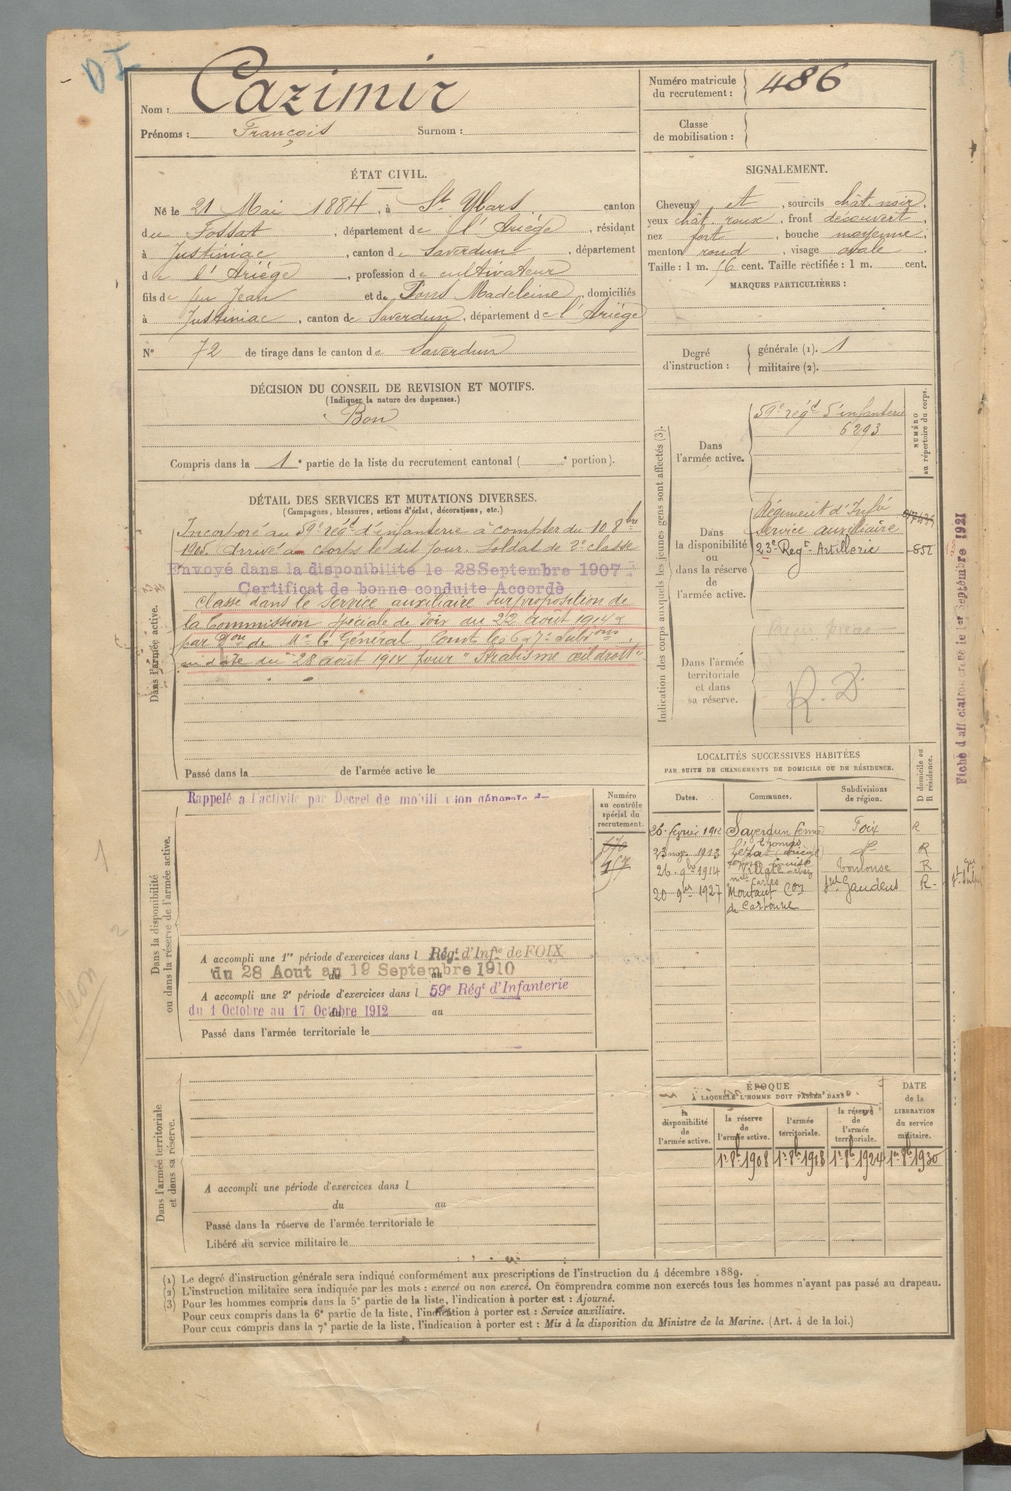 Nom : Cazimir
Prénoms : François Surnom :
Numéro matricule
du recrutement : 486
Classe
de mobilisation :
ÉTAT CIVIL.
Né le 21 Mai 1884, à St Ybars canton
du Fossat, département de l'Ariège, résidant
à Justiniac, canton de Saverdun, département
de l'Ariège, profession de cultivateur
fils de feu Jean et de Pons Madeleine, domiciliés
à Justiniac, canton de Saverdun, département de l'Ariège
No 72 de tirage dans le canton de Saverdun
SIGNALEMENT.
Cheveux et, sourcils chât. noir,
yeux chât. roux, front découvert,
nez fort, bouche moyenne,
menton rond, visage ovale
Taille : 1 m. 76 cent. Taille rectifiée : 1 m. cent.
MARQUES PARTICULIÈRES :
Degré
d'instruction :
générale (1). 1
militaire (2).
DÉCISION DU CONSEIL DE REVISION ET MOTIFS.
(Indiquer la nature des dispenses.)
Bon
Compris dans la 1e partie de la liste du recrutement cantonal ( e portion).
DÉTAIL DES SERVICES ET MUTATIONS DIVERSES.
(Campagnes, blessures, actions d'éclat, décorations, etc.)
Dans l'armée active.
Incorporé au 59e régt d'infanterie à compter du 10 8bre
1905. Arrivé au corps le dit jour. Soldat de 2e classe
Envoyé dans la disponibilité le 28 Septembre 1907.
Certificat de bonne conduite Accordé
Classé dans le service auxiliaire sur proposition de
la Commission spéciale de Foix du 22 août 1914 &
par don de Mr le Général Comt les 6 & 7e Subions,
en date du 28 août 1914 pour "Strabisme œil droit"
Passé dans la de l'armée active le
Indication des corps auxquels les jeunes gens sont affectés (3).
NUMÉRO
au répertoire du corps.
Dans
l'armée active.
59e régt d'infanterie
6293
Dans
la disponibilité
ou
dans la réserve
de
l'armée active.
Régiment d'Infie
Service auxiliaire
23e Regt Artillerie 852
Dans l'armée
territoriale
et dans
sa réserve.
R. D.
Fiche d'affectation créée le 1er Septembre 1921
Dans la disponibilité
ou dans la réserve de l'armée active.
Rappelé à l'activité par Décret de mobilisation générale du
Numéro
au contrôle
spécial du
recrutement.
A accompli une 1re période d'exercices dans l Régt d'Infie de FOIX
du 28 Aout au 19 Septembre 1910
A accompli une 2e période d'exercices dans l 59e Régt d'Infanterie
du 1 Octobre au 17 Octobre 1912 au
Passé dans l'armée territoriale le
LOCALITÉS SUCCESSIVES HABITÉES
PAR SUITE DE CHANGEMENTS DE DOMICILE OU DE RÉSIDENCE.
Dates. Communes. Subdivisions
de région. D domicile ou
R résidence.
26 février 1912 Saverdun Foix R
23 1913 do R
26 9bre 1914 Toulouse R
20 9bre 1927 Montaut Con St Gaudens R
de Carbonne
Dans l'armée territoriale
et dans sa réserve.
A accompli une période d'exercices dans l
du au
Passé dans la réserve de l'armée territoriale le
Libéré du service militaire le
ÉPOQUE
À LAQUELLE L'HOMME DOIT PASSER DANS
la
disponibilité
de
l'armée active.
la réserve
de
l'armée active.
l'armée
territoriale.
la réserve
de
l'armée
territoriale.
DATE
de la
LIBÉRATION
du service
militaire.
1r 8bre 1908 1r 8bre 1918 1r 8bre 1924 1r 8bre 1930
(1) Le degré d'instruction générale sera indiqué conformément aux prescriptions de l'instruction du 4 décembre 1889.
(2) L'instruction militaire sera indiquée par les mots : exercé ou non exercé. On comprendra comme non exercés tous les hommes n'ayant pas passé au drapeau.
(3) Pour les hommes compris dans la 5e partie de la liste, l'indication à porter est : Ajourné.
Pour ceux compris dans la 6e partie de la liste, l'indication à porter est : Service auxiliaire.
Pour ceux compris dans la 7e partie de la liste, l'indication à porter est : Mis à la disposition du Ministre de la Marine. (Art. 4 de la loi.)